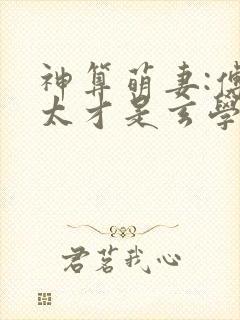 神算萌妻:傅
太才是玄學
君茗我心